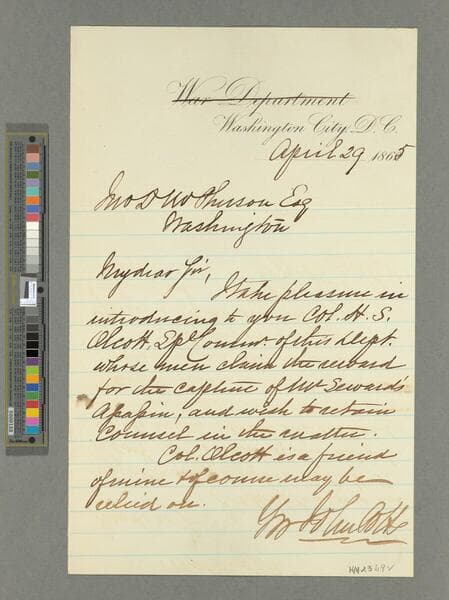 War Department
Washington City, D. C.
April 29 1865
Jno D McPherson Esq
Washington
My dear Sir,
I take pleasure in
introducing to you Col. H. S.
Olcott, Spl Commr. of this Dept.
whose men claim the reward
for the capture of Mr Seward's
Assassin, and wish to retain
Counsel in the matter.
Col. Olcott is a friend
of mine & of course may be
relied on.
HM 23692